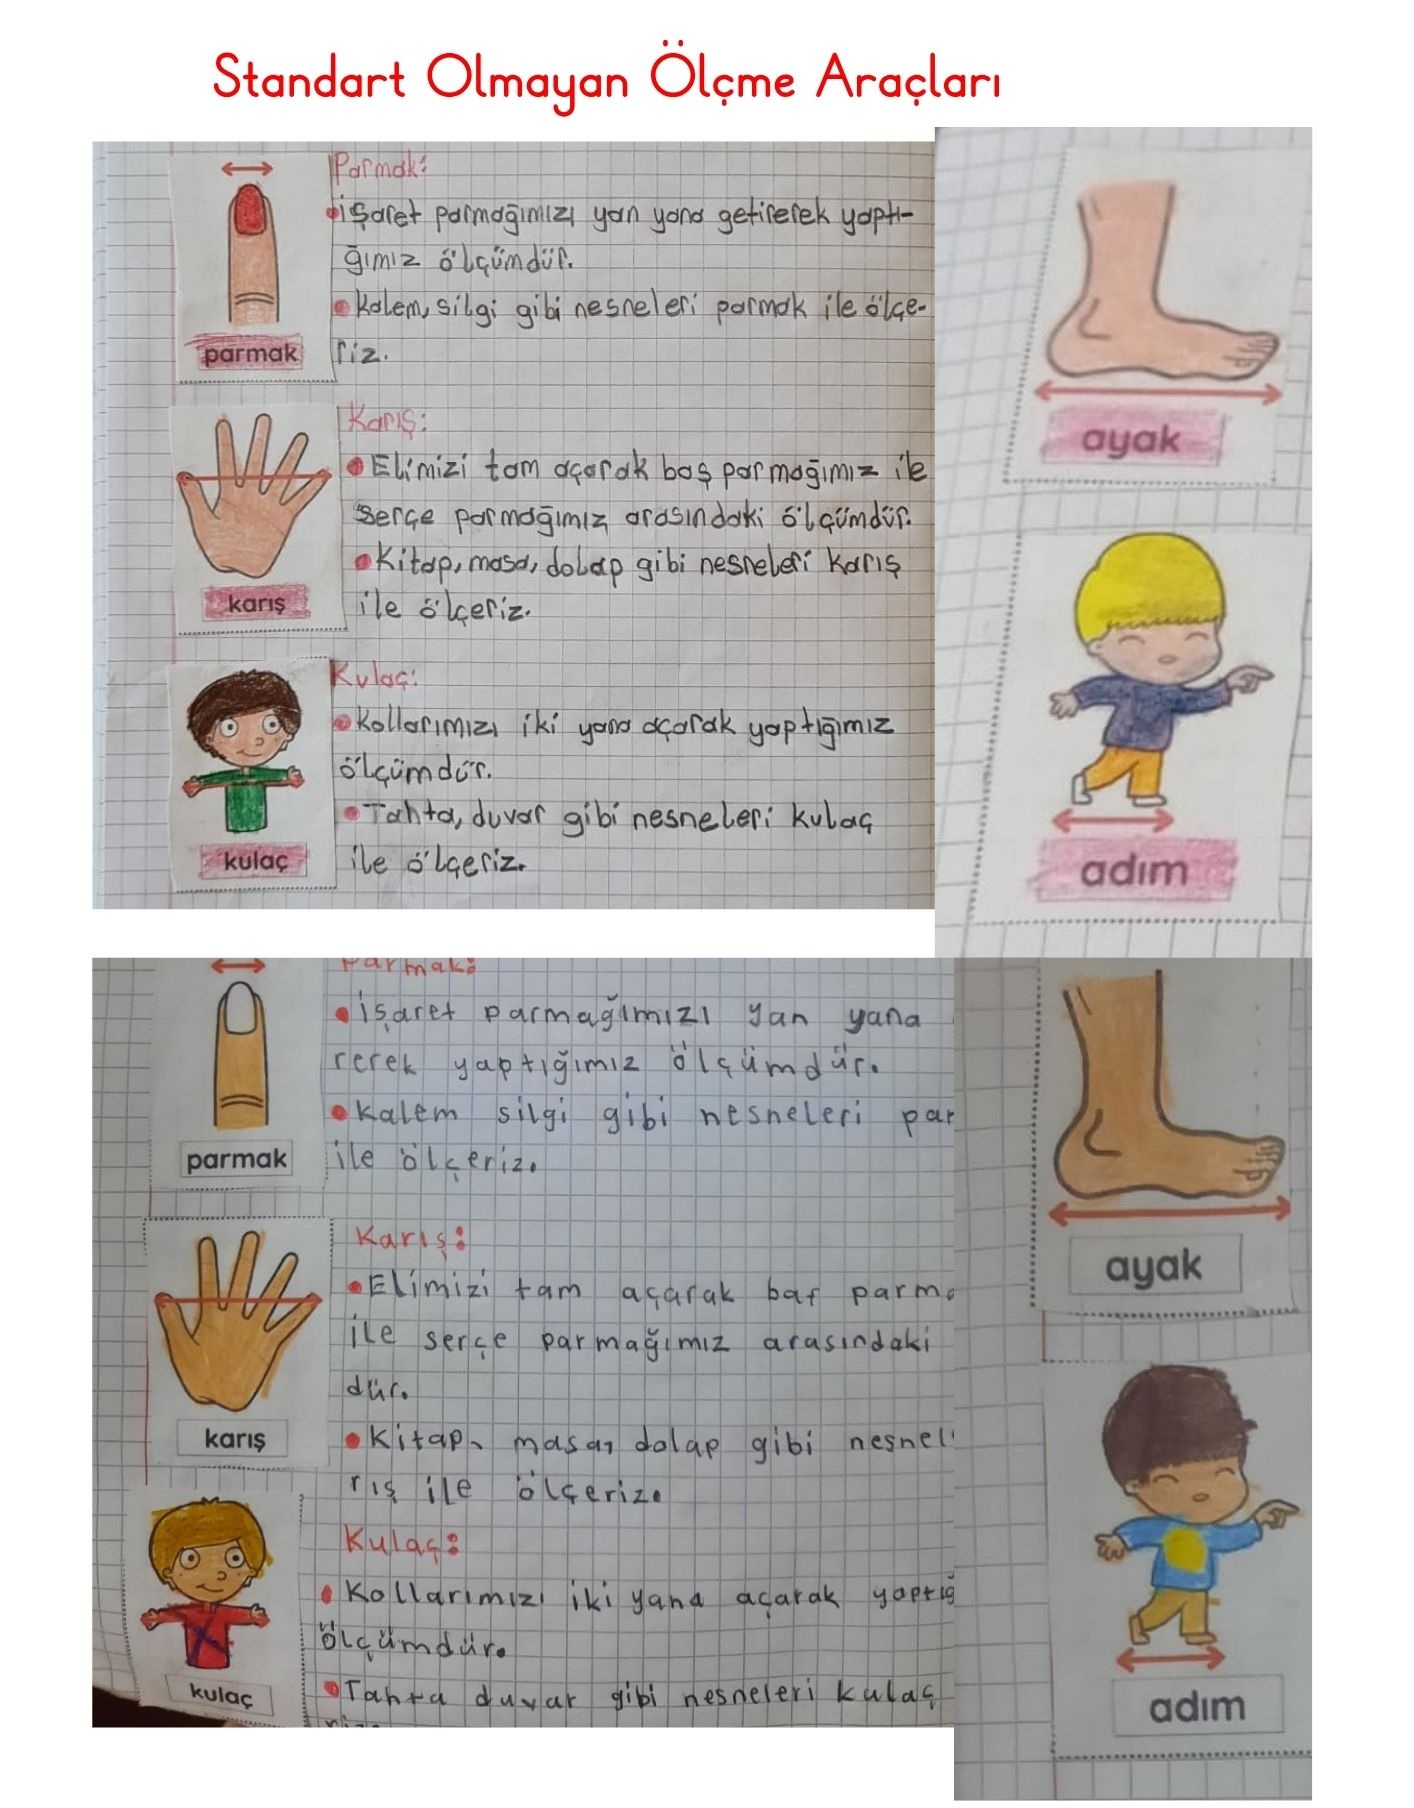 Standart Olmayan Ölçme Araçları
Parmak:
İşaret parmağımızı yan yana getirerek yaptı-
ğımız ölçümdür.
Kalem, silgi gibi nesneleri parmak ile ölçe-
riz.
parmak
Karış:
Elimizi tam açarak baş parmağımız ile
serçe parmağımız arasındaki ölçümdür.
Kitap, masa, dolap gibi nesneleri karış
ile ölçeriz.
karış
Kulaç:
Kollarımızı iki yana açarak yaptığımız
ölçümdür.
Tahta, duvar gibi nesneleri kulaç
ile ölçeriz.
kulaç
ayak
adım
Parmak:
İşaret parmağımızı yan yana
rerek yaptığımız ölçümdür.
Kalem silgi gibi nesneleri par
ile ölçeriz.
parmak
Karış:
Elimizi tam açarak baş parma
ile serçe parmağımız arasındaki
dür.
Kitap, masa, dolap gibi nesnel
rış ile ölçeriz.
karış
Kulaç:
Kollarımızı iki yana açarak yaptığ
ölçümdür.
Tahta duvar gibi nesneleri kulaç
kulaç
ayak
adım